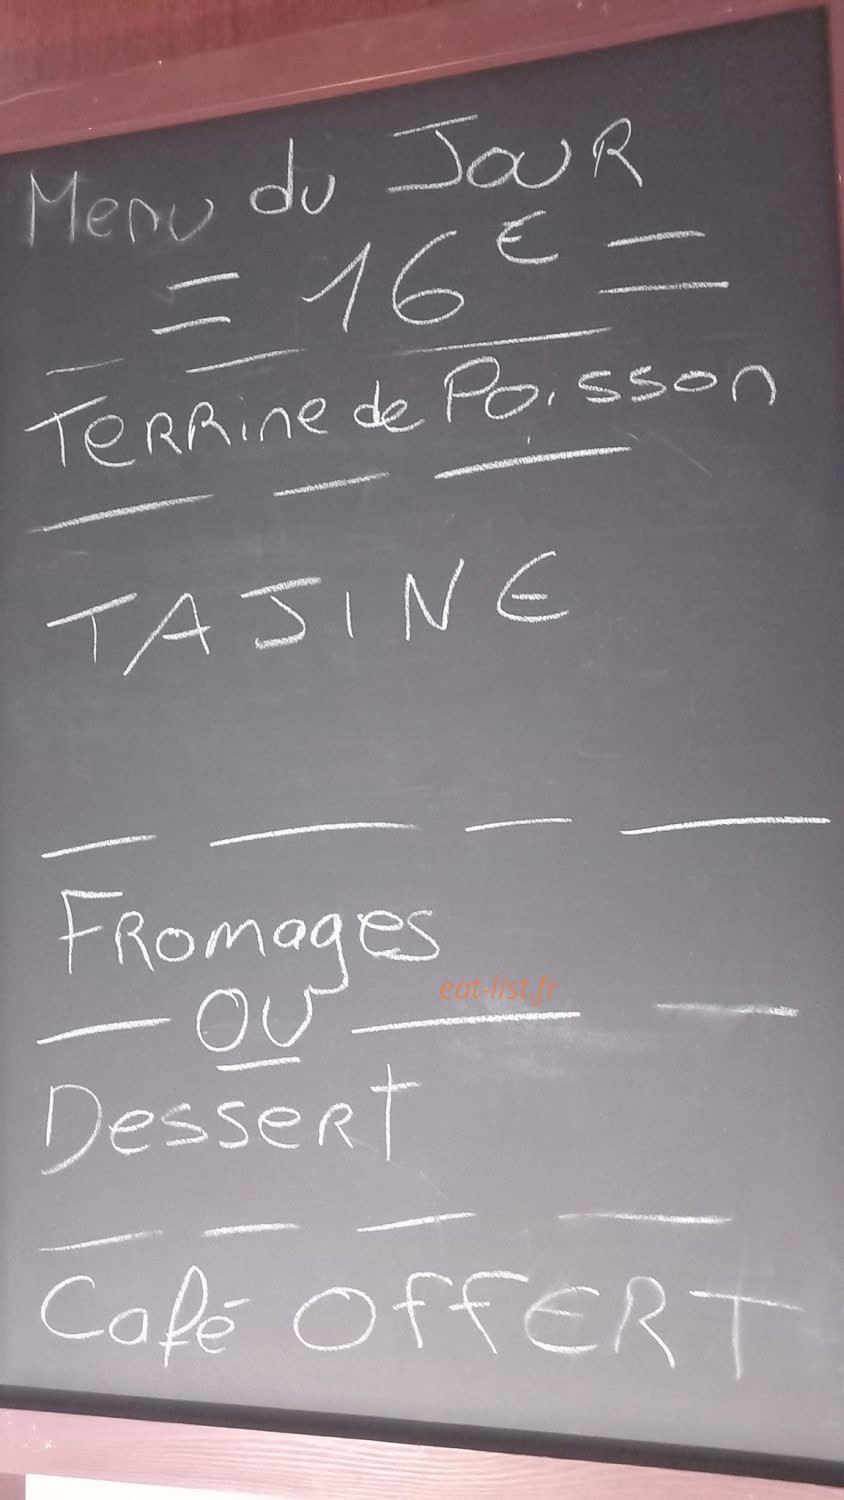 Menu du JOUR
= 16€ =
Terrine de Poisson
TAJINE
Fromages
OU
eat-list.fr
Dessert
Café OFFERT